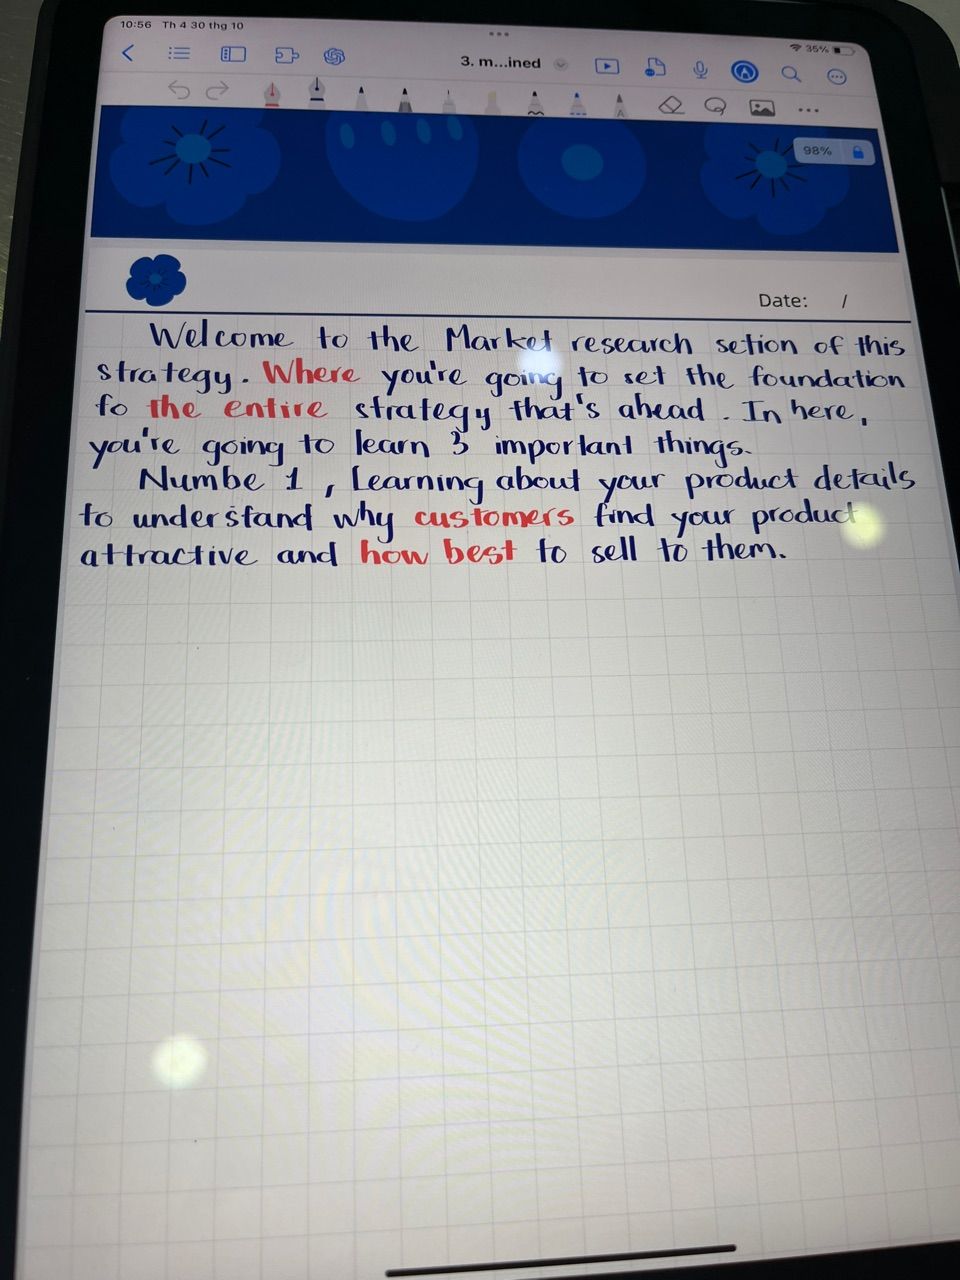 10:56 Th 4 30 thg 10
35%
3. m...ined
98%
Date: /
Welcome to the Market research setion of this
strategy. Where you're going to set the foundation
fo the entire strategy that's ahead. In here,
you're going to learn 3 important things.
Numbe 1, Learning about your product details
to understand why customers find your product
attractive and how best to sell to them.